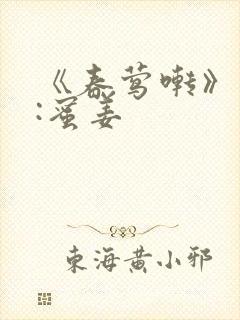 《春莺啭》
:蜜姜
東海黄小邪